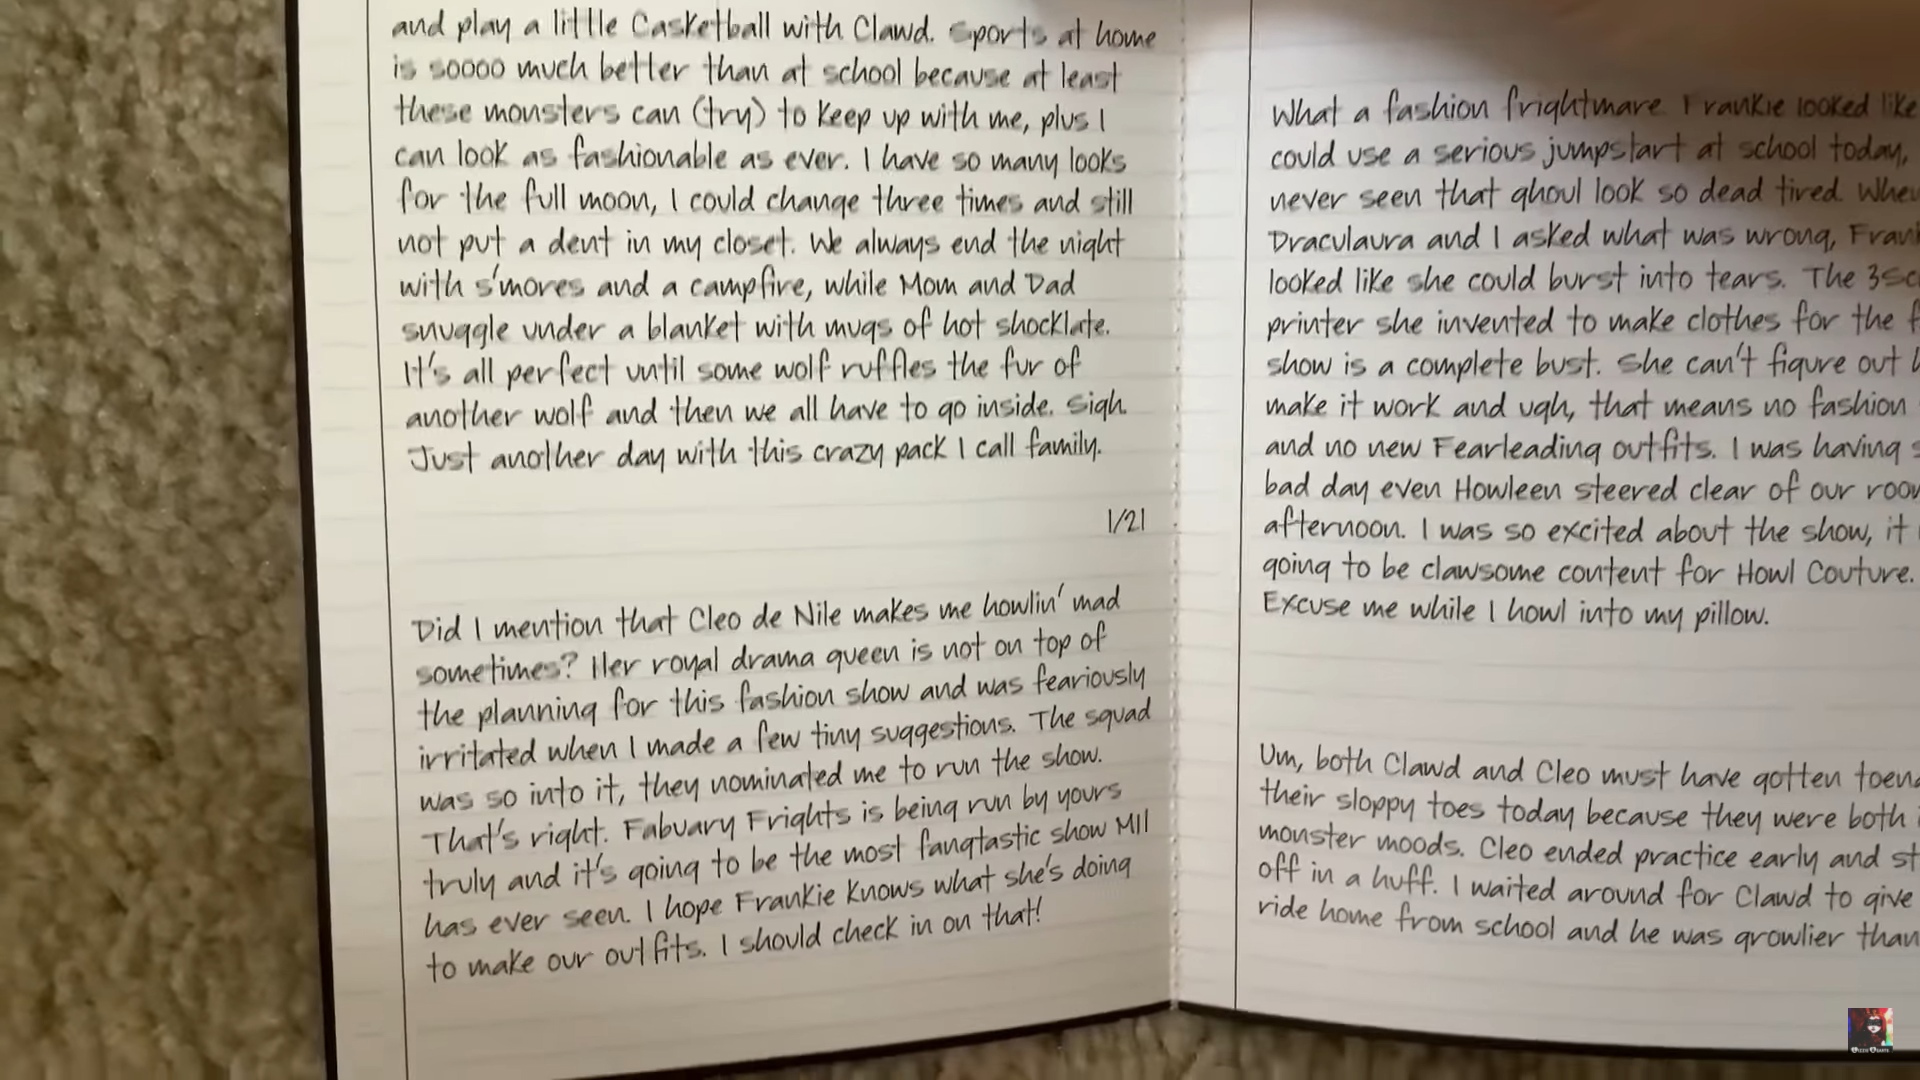 and play a little Casketball with Clawd. Sports at home
is soooo much better than at school because at least
these monsters can (try) to keep up with me, plus I
can look as fashionable as ever. I have so many looks
for the full moon, I could change three times and still
not put a dent in my closet. We always end the night
with s'mores and a campfire, while Mom and Dad
snuggle under a blanket with mugs of hot shocklate.
It's all perfect until some wolf ruffles the fur of
another wolf and then we all have to go inside. Sigh.
Just another day with this crazy pack I call family.
1/21
Did I mention that Cleo de Nile makes me howlin' mad
sometimes? Her royal drama queen is not on top of
the planning for this fashion show and was feariously
irritated when I made a few tiny suggestions. The squad
was so into it, they nominated me to run the show.
That's right. Fabuary Frights is being run by yours
truly and it's going to be the most fangtastic show MH
has ever seen. I hope Frankie knows what she's doing
to make our outfits. I should check in on that!
What a fashion frightmare. Frankie looked like
could use a serious jumpstart at school today,
never seen that ghoul look so dead tired. When
Draculaura and I asked what was wrong,
looked like she could burst into tears. The
printer she invented to make clothes for the
show is a complete bust. She can't figure out
make it work and ugh, that means no fashion
and no new Fearleading outfits. I was having
bad day even Howleen steered clear of our
afternoon. I was so excited about the show, it
going to be clawsome content for Howl Couture.
Excuse me while I howl into my pillow.
Um, both Clawd and Cleo must have gotten
their sloppy toes today because they were both
monster moods. Cleo ended practice early and
off in a huff. I waited around for Clawd to give
ride home from school and he was growlier than